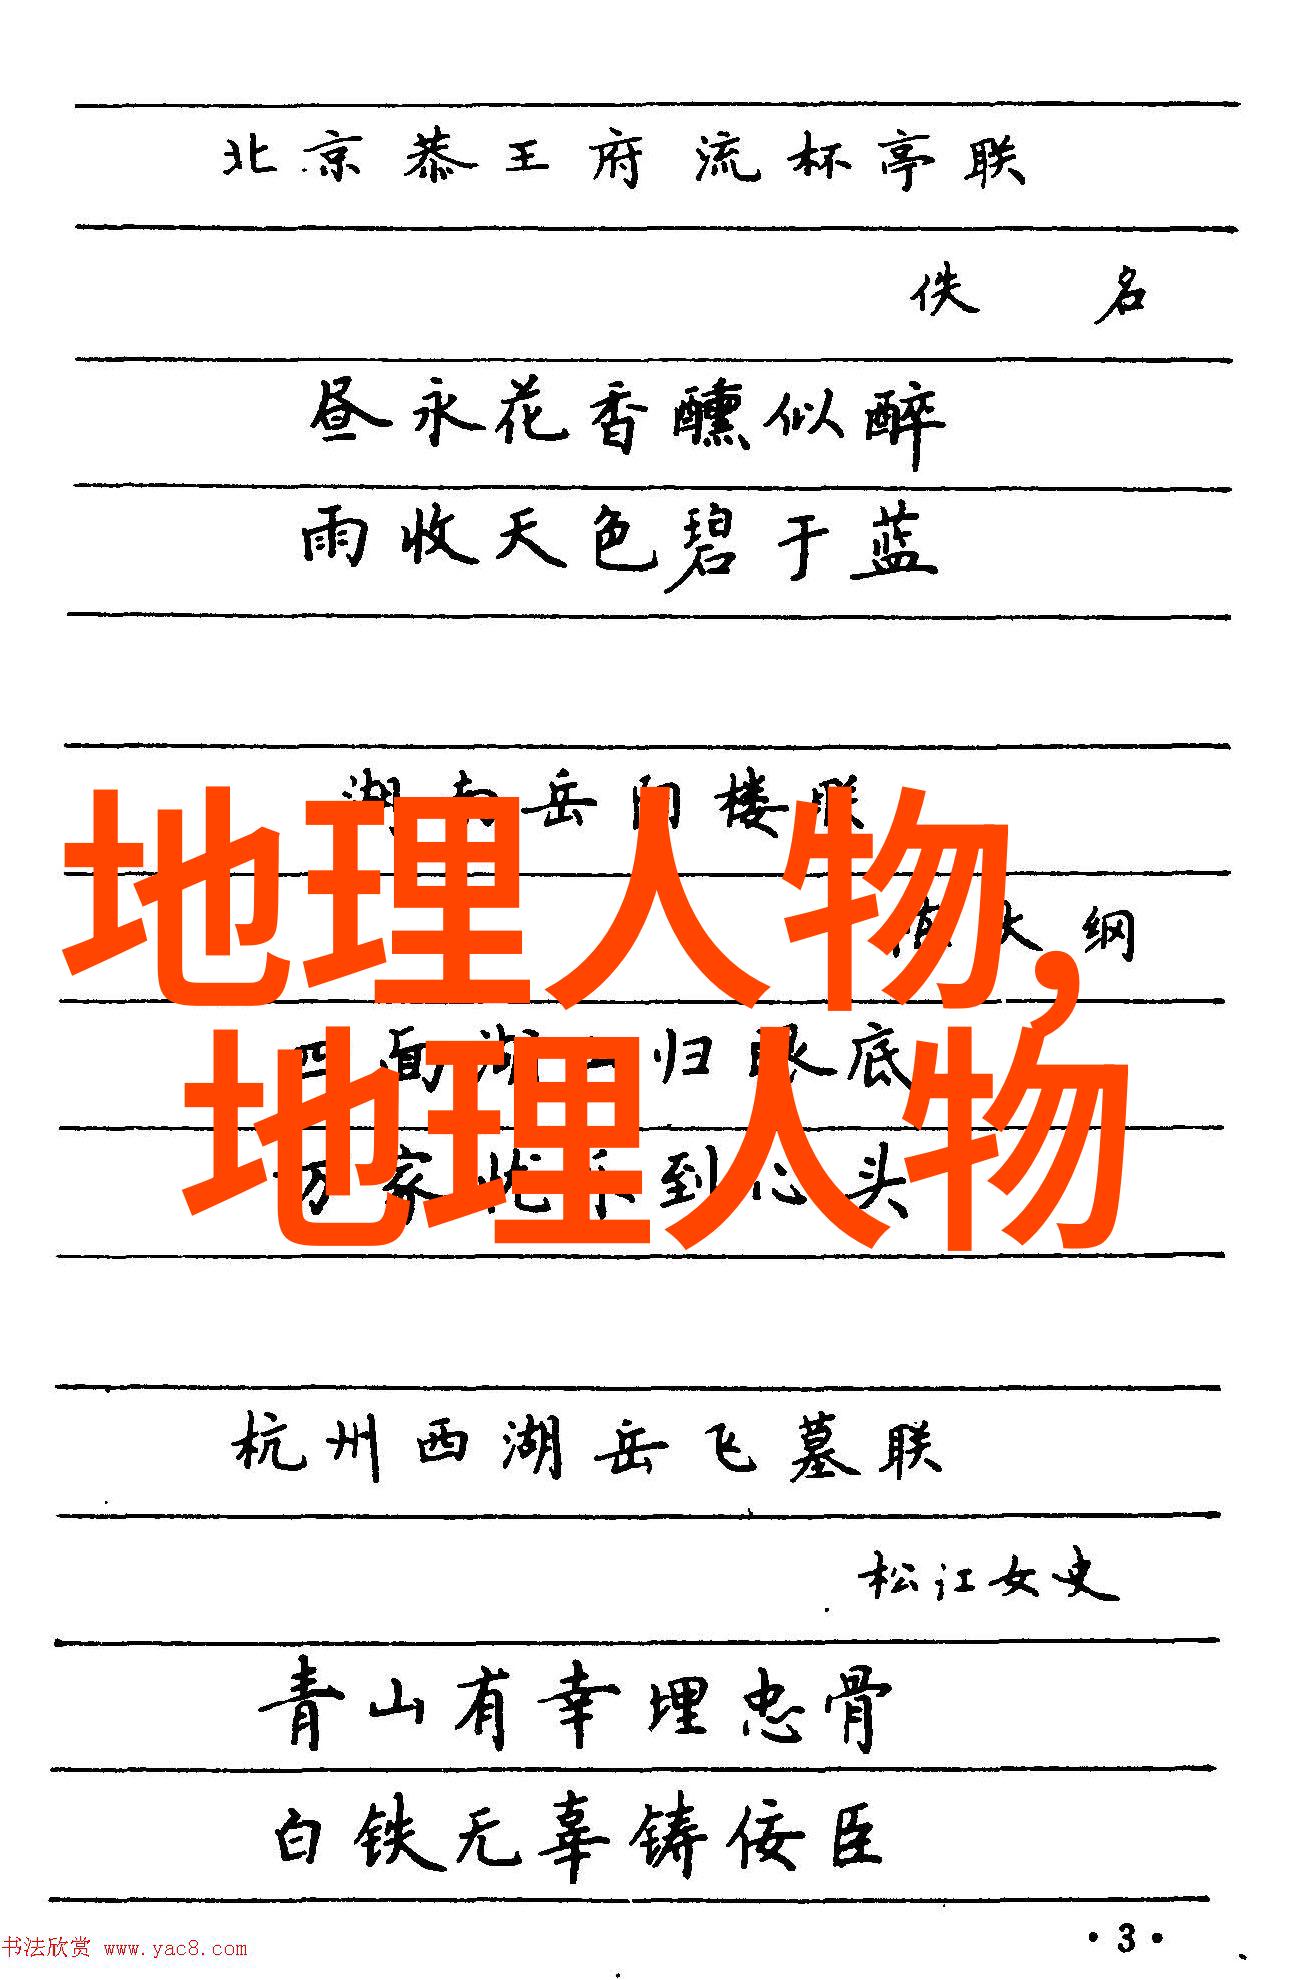 北京恭王府流杯亭联
佚名
昼永花香醺似醉
雨收天色碧于蓝
湖南岳阳楼联
地理人物,
大纲
地理人物
四面湖山归眼底
万家忧乐到心头
杭州西湖岳飞墓联
松江女史
青山有幸埋忠骨
白铁无辜铸佞臣
·3·
书法欣赏 www.yac8.com